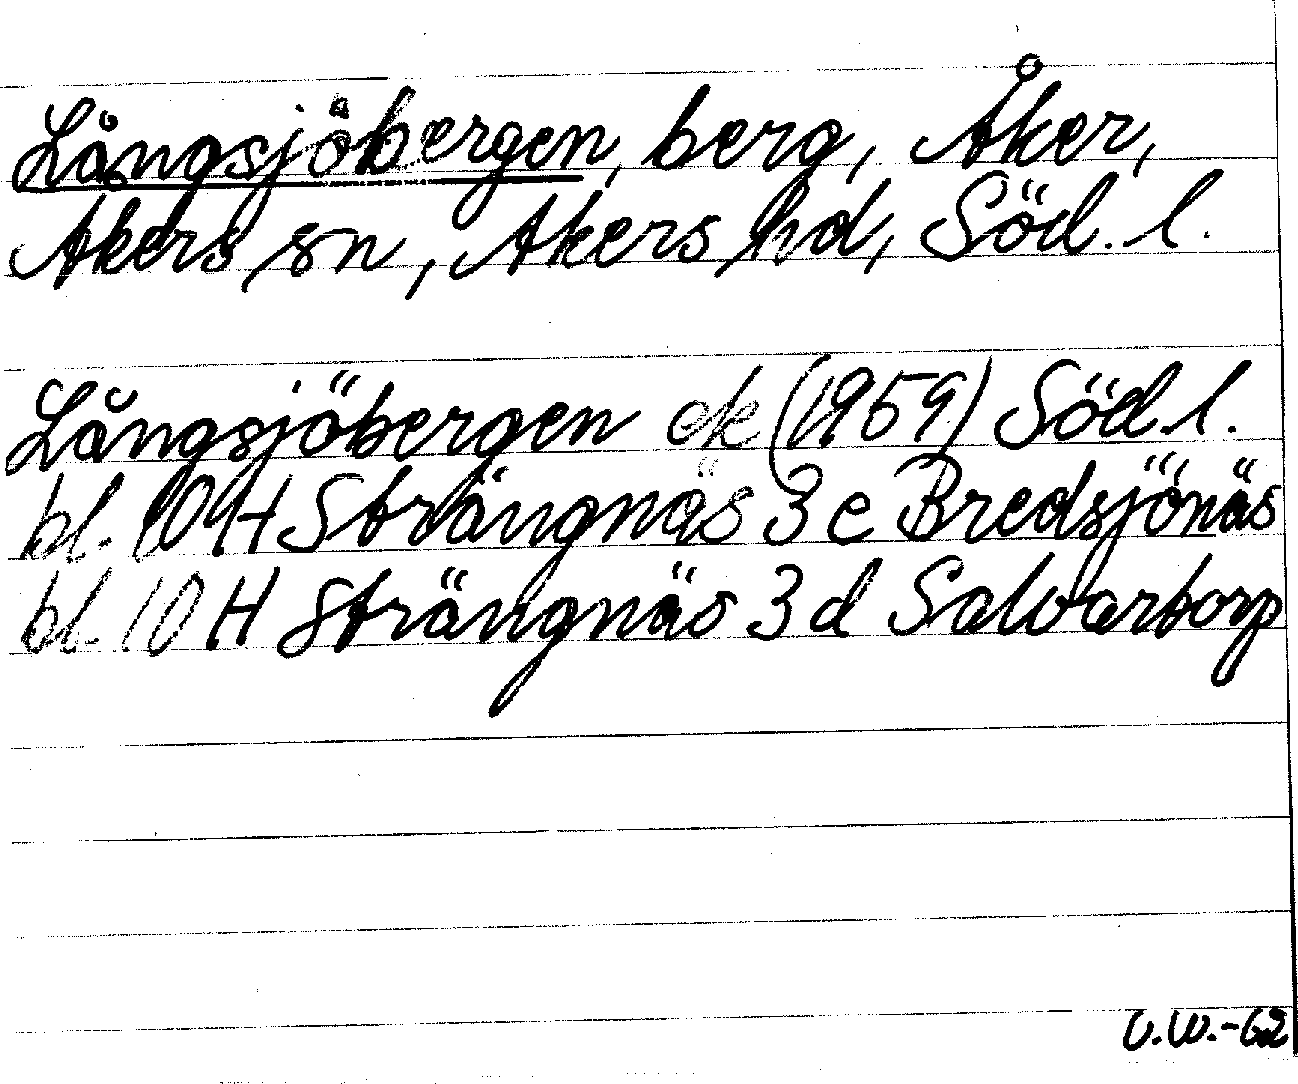 Långsjöbergen, berg, Åker,
Åkers sn, Åkers hd, Söd. l.
Långsjöbergen ek (1959) Söd. l.
bl. 10 H Strängnäs 3 e Bredsjönäs
bl. 10 H Strängnäs 3 d Salvartorp
U.W.-62